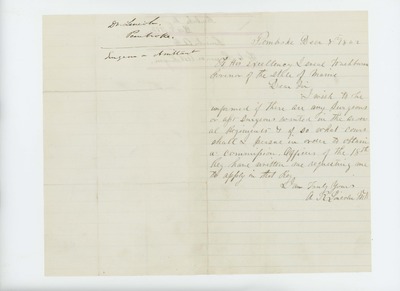 Dr. Lincoln.
Pembroke.
Surgeon or Assistant
Pembroke Decr
To his Excellency Israel Washburn
Governor of the State of Maine
Dear Sir
I wish to be
informed if there are any Surgeons
or Surgeons wanted in the sever
al Regiments & if so what course
shall I persue in order to obtain
a commission. Officers of the 15th
Reg have written me requesting me
to apply in that Reg
I am Truly Yours
A. R. Lincoln